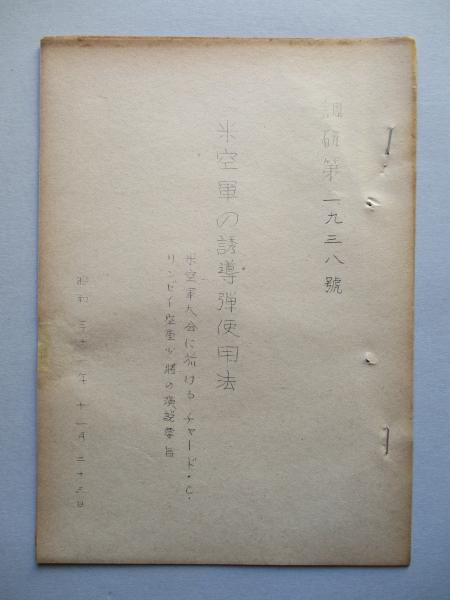 調研第一九三八號
米空軍の誘導弾使用法
米空軍大会に於ける チャード・C・
リンゼイ空軍少将の演説要旨
昭和三十 年十一月二十三日